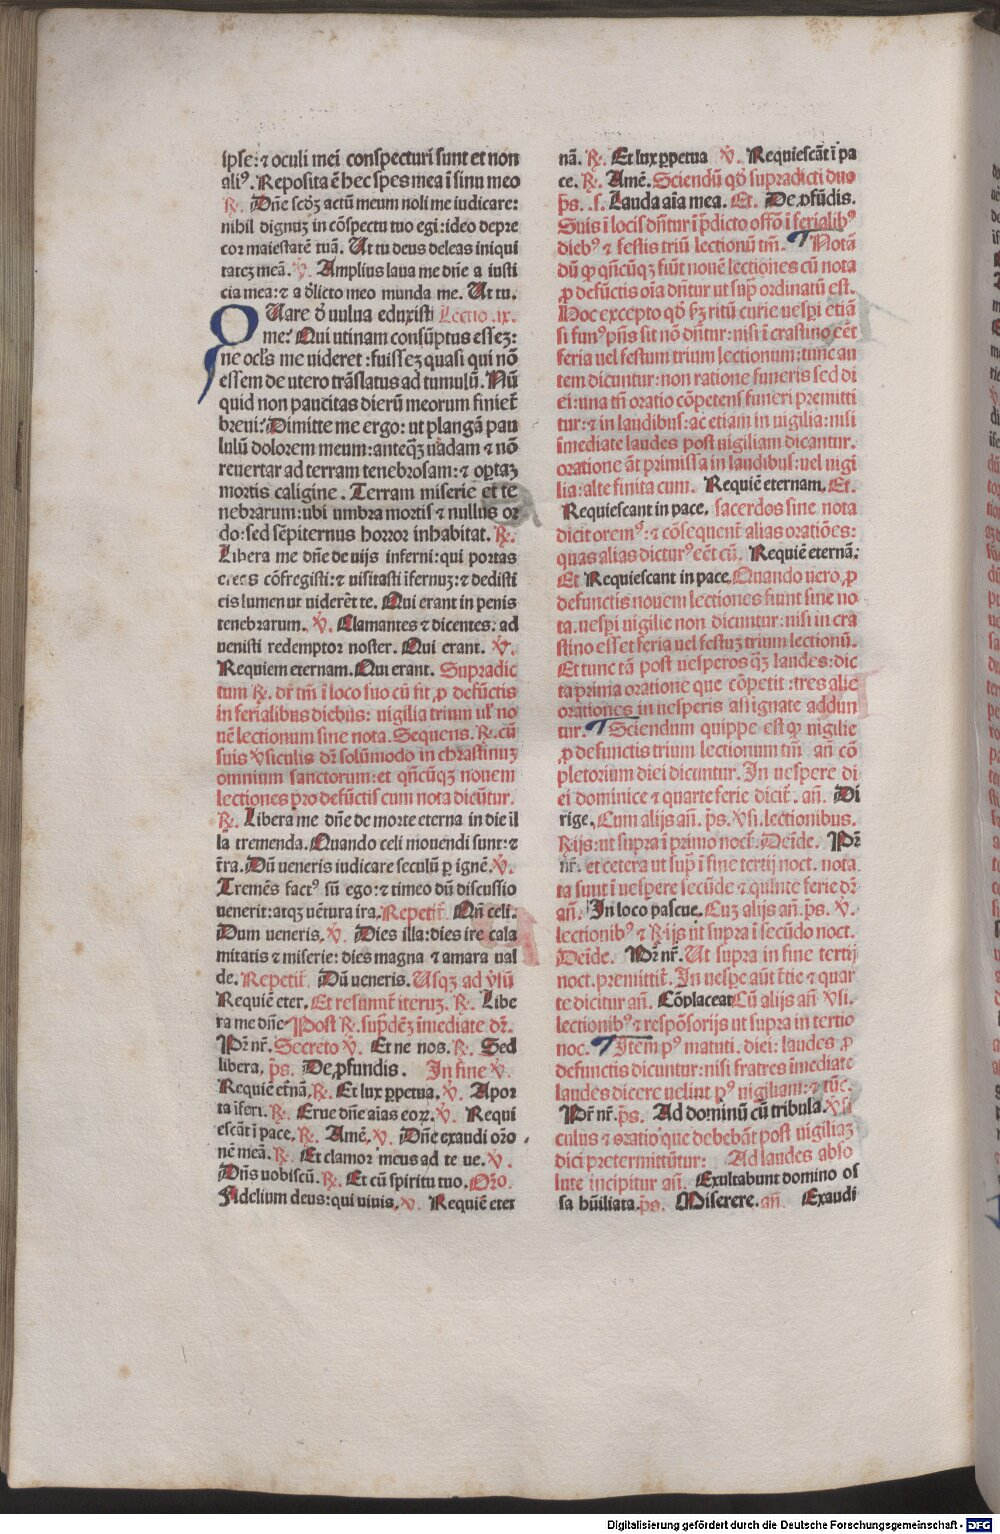 ipse: ⁊ oculi mei conspecturi sunt et non
aliꝰ. Reposita ē hec spes mea ī sinu meo
℟. Dn̄e scd̓z actū meum noli me iudicare:
nihil dignuz in cōspectu tuo egi: ideo depre
cor maiestatē tuā. Ut tu deus deleas iniqui
tatez meā. ℣. Amplius laua me dn̄e a iusti
cia mea: ⁊ a d̓licto meo munda me. Ut tu.
Quare d̓ uulua eduxisti Lectio .ix.
me? Qui utinam consūptus essez:
ne ocl̓s me uideret: fuissez quasi qui nō
essem de utero trāslatus ad tumulū. Nū
quid non paucitas dierū meorum finiet̄
breui? Dimitte me ergo: ut plangā pau
lulū dolorem meum: anteq̄ꝫ uadam ⁊ nō
reuertar ad terram tenebrosam: ⁊ op̄taz
mortis caligine. Terram miserie et te
nebrarum: ubi umbra mortis ⁊ nullus or
do: sed sēpiternus horror inhabitat. ℟.
Libera me dn̄e de uijs inferni: qui portas
ereas cōfregisti: ⁊ uisitasti īfernuz: ⁊ dedisti
eis lumen ut uiderēt te. Qui erant in penis
tenebrarum. ℣. Clamantes ⁊ dicentes: ad
uenisti redemptor noster. Qui erant. ℣.
Requiem eternam. Qui erant. Supradic
tum ℟. dr̄ tm̄ ī loco suo cū fit ꝓ defūctis
in ferialibus diebus: uigilia trium ul̓ no
uē lectionum sine nota. Sequens. ℟. cū
suis ℣siculis dr̄ solūmodo in chrastinuz
omnium sanctorum: et qn̄cūqꝫ nouem
lectiones pro defūctis cum nota dicūtur.
℟. Libera me dn̄e de morte eterna in die il
la tremenda. Quando celi mouendi sunt: ⁊
t̄ra. Dū ueneris iudicare seculū ꝑ ignē. ℣.
Tremēs factꝰ sū ego: ⁊ timeo dū discussio
uenerit: atqꝫ uētura ira. Repetit̄. Qn̄ celi.
Dum ueneris. ℣. Dies illa: dies ire cala
mitatis ⁊ miserie: dies magna ⁊ amara ual
de. Repetit̄. Dū ueneris. Usqꝫ ad ℣lū
Requiē eter. Et resumit̄ iteruz. ℟. Libe
ra me dn̄e Post ℟. sup̄dēz īmediate dr̄.
Pr̄ nr̄. Secreto ℣. Et ne nos. ℟. Sed
libera. p̄s. De ꝓfundis. In fine ℣.
Requiē et̄nā. ℟. Et lux ꝑpetua. ℣. A por
ta īferi. ℟. Erue dn̄e aīas eoꝝ. ℣. Requi
escāt ī pace. ℟. Amē. ℣. Dn̄e exaudi or̄o
nē meā. ℟. Et clamor meus ad te ue. ℣.
Dn̄s uobiscū. ℟. Et cū spiritu tuo. Or̄o.
Fidelium deus: qui viuis. ℣. Requiē eter
nā. ℟. Et lux ꝑpetua ℣. Requiescāt ī pa
ce. ℟. Amē. Sciendū qd̓ supradicti duo
p̄s. .s. Lauda aīa mea. Et. De ꝓfūdis.
Suis ī locis dn̄tur ī p̄dicto offō ī ferialibꝰ
diebꝰ ⁊ festis triū lectionū tm̄. ¶ Notā
dū ꝙ qn̄cūqꝫ fiūt nouē lectiones cū nota
ꝓ defūctis oīa dn̄tur ut sup̄ ordinatū est.
Hoc excepto qd̓ ẜꝫ ritū curie uesp̄i etiā
si funꝰ p̄ns sit nō dn̄tur: nisi ī crastino eēt
feria uel festum trium lectionum: tunc au
tem dicuntur: non ratione funeris sed di
ei: una tn̄ oratio cōpetens funeri premitti
tur: ⁊ in laudibus: ac etiam in uigilia: nisi
īmediate laudes post uigiliam dicantur.
oratione āt primissa in laudibus: uel uigi
lia: alte finita cum. Requiē eternam. Et.
Requiescant in pace. sacerdos sine nota
dicit oremꝰ: ⁊ cōsequent̄ alias oratiōes:
quas alias dicturꝰ eēt cū. Requiē eternā:
Et Requiescant in pace. Quando uero ꝓ
defunctis nouem lectiones fiunt sine no
ta. uesp̄i uigilie non dicuntur: nisi in cra
stino esset feria uel festuz trium lectionū.
Et tunc tā post uesperos qꝫ laudes: dic
ta prima oratione que cōpetit: tres alie
orationes in uesperis assignate addun
tur. ¶ Sciendum quippe est ꝙ uigilie
ꝓ defunctis trium lectionum tm̄ an̄ cō
pletorium diei dicuntur. In uespere di
ei dominice ⁊ quarte ferie dicit̄. an̄. Di
rige. Cum alijs an̄. p̄s. ℣si. lectionibus.
℟ijs: ut supra ī primo noct̄. Deīde. Pr̄
nr̄. et cetera ut sup̄ ī fine tertij noct. nota
ta sunt ī uespere secūde ⁊ quinte ferie dr̄
an̄. In loco pascue. Cuz alijs an̄. p̄s. ℣.
lectionibꝰ ⁊ ℟ijs ut supra ī secūdo noct.
Deīde. Pr̄ nr̄. Ut supra in fine tertij
noct. premittit̄. In uesp̄e aūt t̄tie ⁊ quar
te dicitur an̄. Cōplaceat Cū alijs an̄ ℣si.
lectionibꝰ ⁊ respōsorijs ut supra in tertio
noc. ¶ Item pꝰ matuti. diei: laudes ꝓ
defunctis dicuntur: nisi fratres īmediate
laudes dicere uelint pꝰ uigiliam: ⁊ tūc.
Pr̄ nr̄. p̄s. Ad dominū cū tribula. ℣si
culus ⁊ oratio que debebāt post uigiliaz
dici pretermittūtur: Ad laudes abso
lute incipitur an̄. Exultabunt domino os
sa hūiliata. p̄s. Miserere. an̄. Exaudi
Digitalisierung gefördert durch die Deutsche Forschungsgemeinschaft - DFG